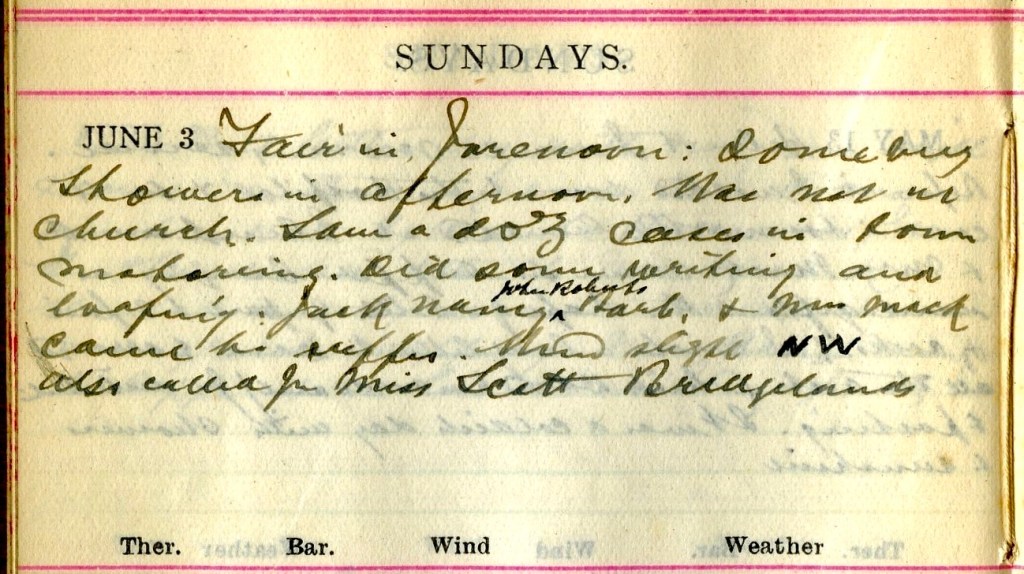 SUNDAYS.
JUNE 3 Fair in forenoon: Some big
showers in afternoon. Was not in
church. Saw a doz cases in town
motoring. Did some writing and
loafing. Jack Nancy John Roberts Barb. & Mrs Mack
came to supper. Wind slight NW
also called for Miss Scott Bridgelands
Ther. Bar. Wind Weather